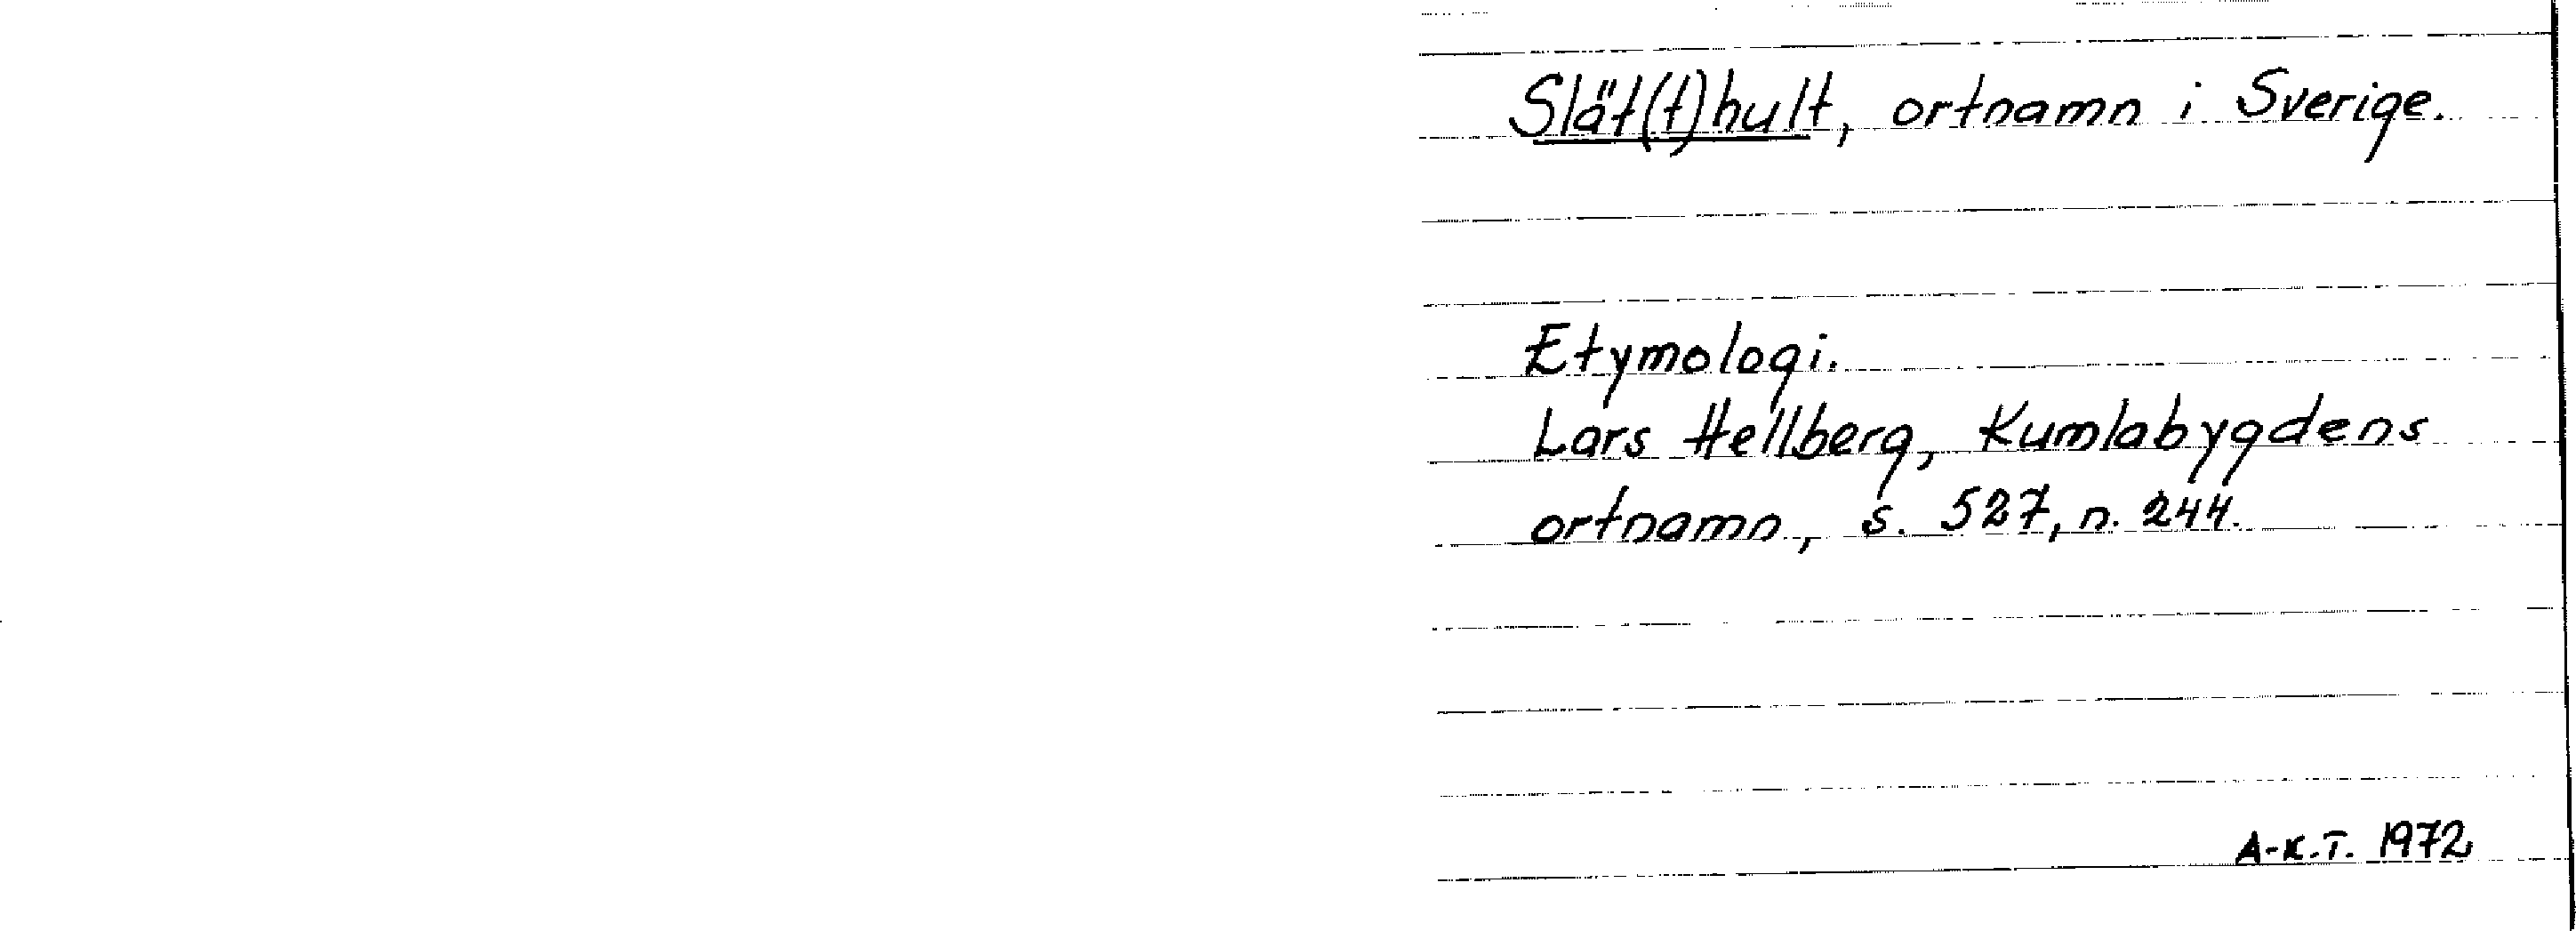 Slät(t)hult, ortnamn i Sverige.
Etymologi.
Lars Hellberg, Kumlabygdens
ortnamn, s. 527, n. 244.
A-K.T. 1972